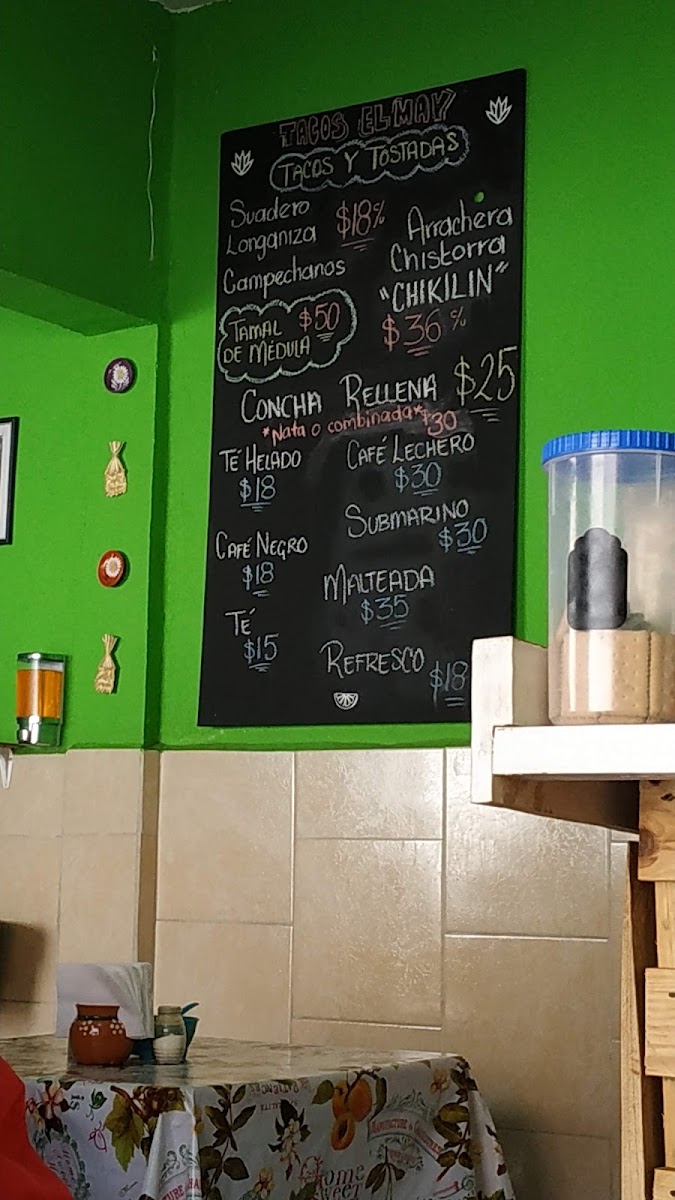 TACOS EL MAY
TACOS Y TOSTADAS
Suadero
Longaniza
Campechanos
$18 c/
Arrachera
Chistorra
"CHIKILIN"
$36 c/
TAMAL $50
DE MÉDULA
CONCHA RELLENA $25
*Nata o combinada* $30
TÉ HELADO
$18
CAFÉ LECHERO
$30
SUBMARINO
$30
CAFÉ NEGRO
$18
MALTEADA
$35
TÉ
$15
REFRESCO
$18